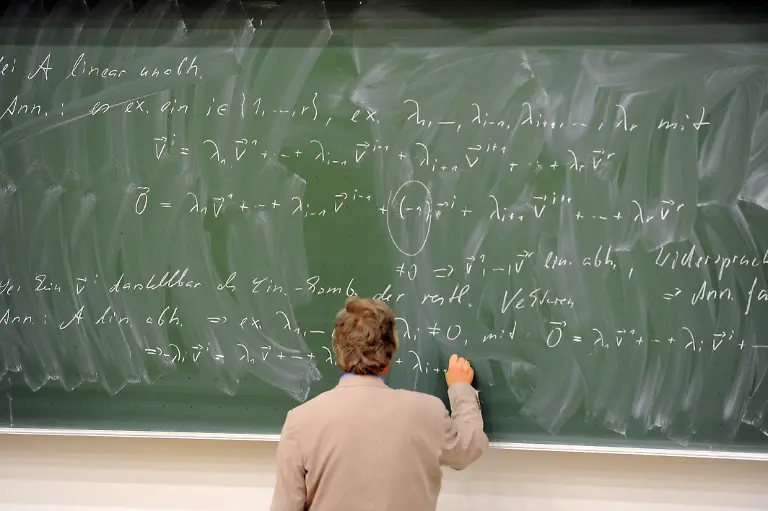 ei A linear unabh.
Ann.: es ex. ein i ∈ {1, ..., r}, ex. λ₁, –, λᵢ₋₁, λᵢ₊₁, ..., λᵣ mit
v⃗ⁱ = λ₁v⃗¹ + ·· + λᵢ₋₁v⃗ⁱ⁻¹ + λᵢ₊₁v⃗ⁱ⁺¹ + ·· + λᵣv⃗ʳ
0⃗ = λ₁v⃗¹ + ·· + λᵢ₋₁v⃗ⁱ⁻¹ + (-1)v⃗ⁱ + λᵢ₊₁v⃗ⁱ⁺¹ + ... + λᵣv⃗ʳ
≠0 ⇒ v⃗¹, –, v⃗ʳ lin. abh., Widerspruch
ein v⃗ⁱ darstellbar als Lin.-Komb. der restl. Vektoren ⇒ Ann. fa
Ann.: A lin. abh. ⇒ ex. λ₁, – λᵢ ≠ 0, mit 0⃗ = λ₁v⃗¹ + ·· + λᵢv⃗ⁱ + ··
⇒ -λᵢv⃗ⁱ = λ₁v⃗¹ + ·· + λ λᵢ₊₁